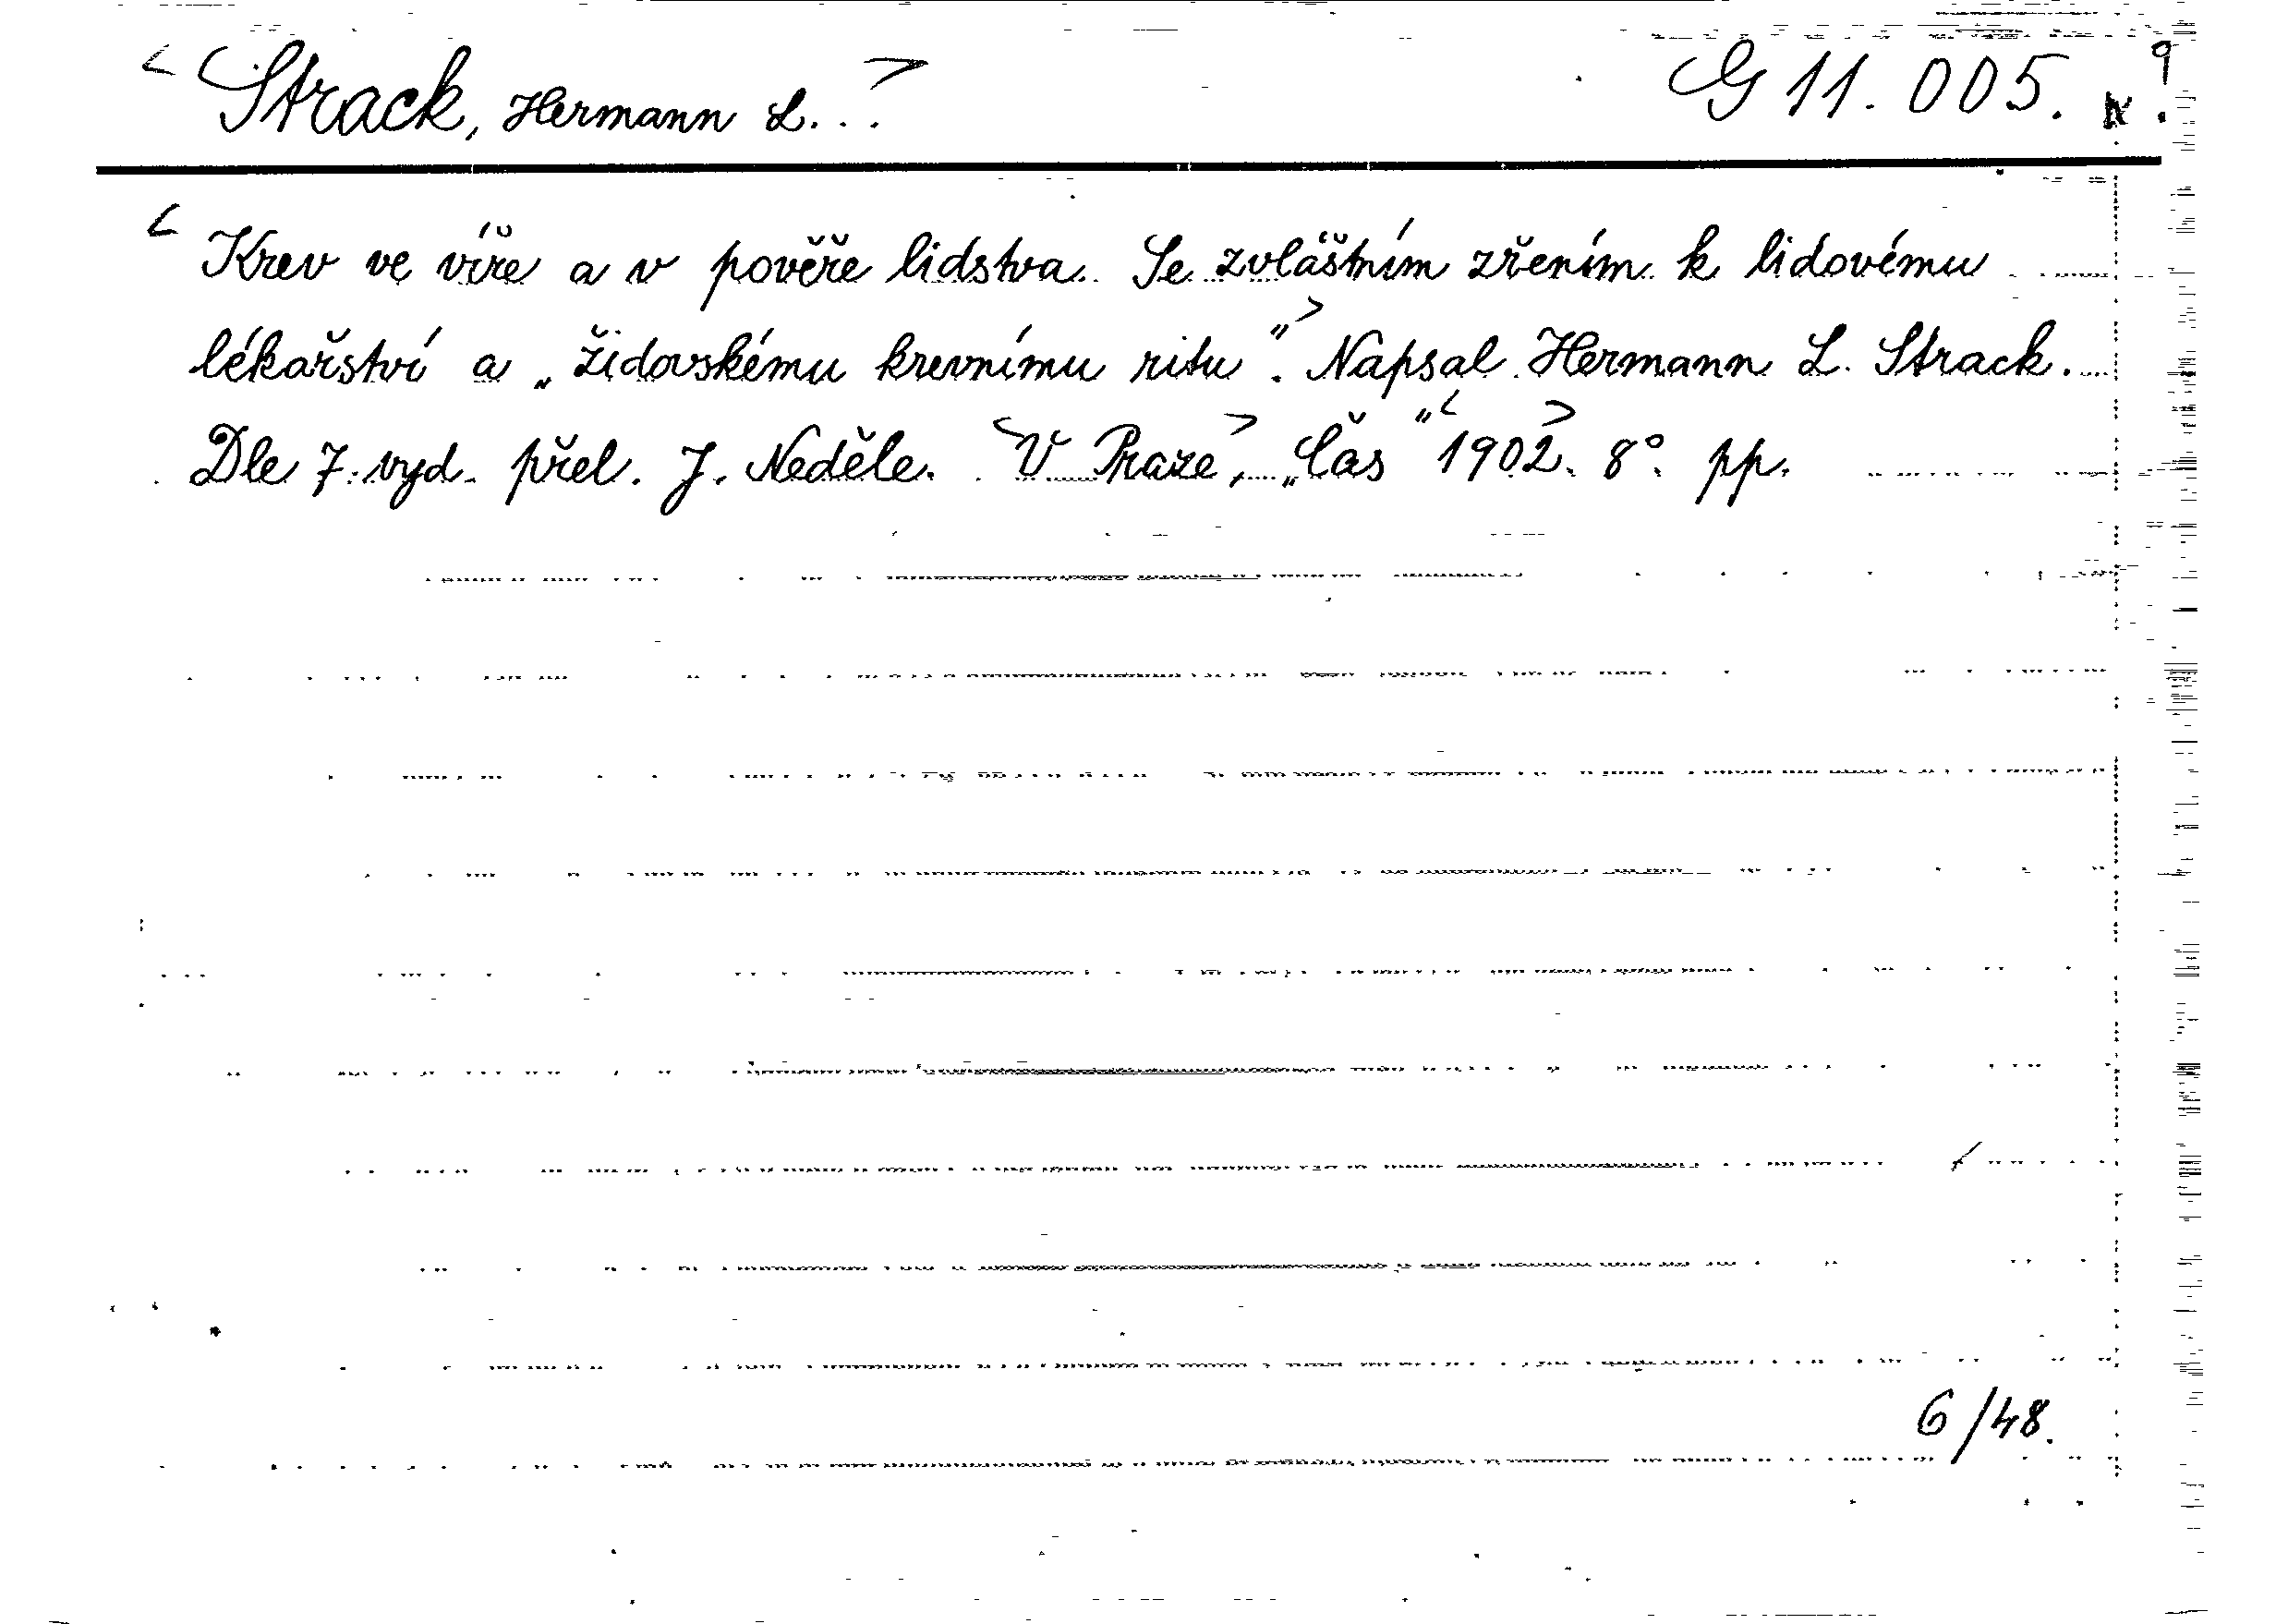 < Strack, Hermann L. . . > G 11.005.
< Krev ve víře a v pověře lidstva. Se zvláštním zřením k lidovému
lékařství a „židovskému krevnímu ritu“.> Napsal Hermann L. Strack.
Dle 7. vyd. přel. J. Neděle. <V Praze>, „Čas“ <1902>. 8°. pp.
6/48.